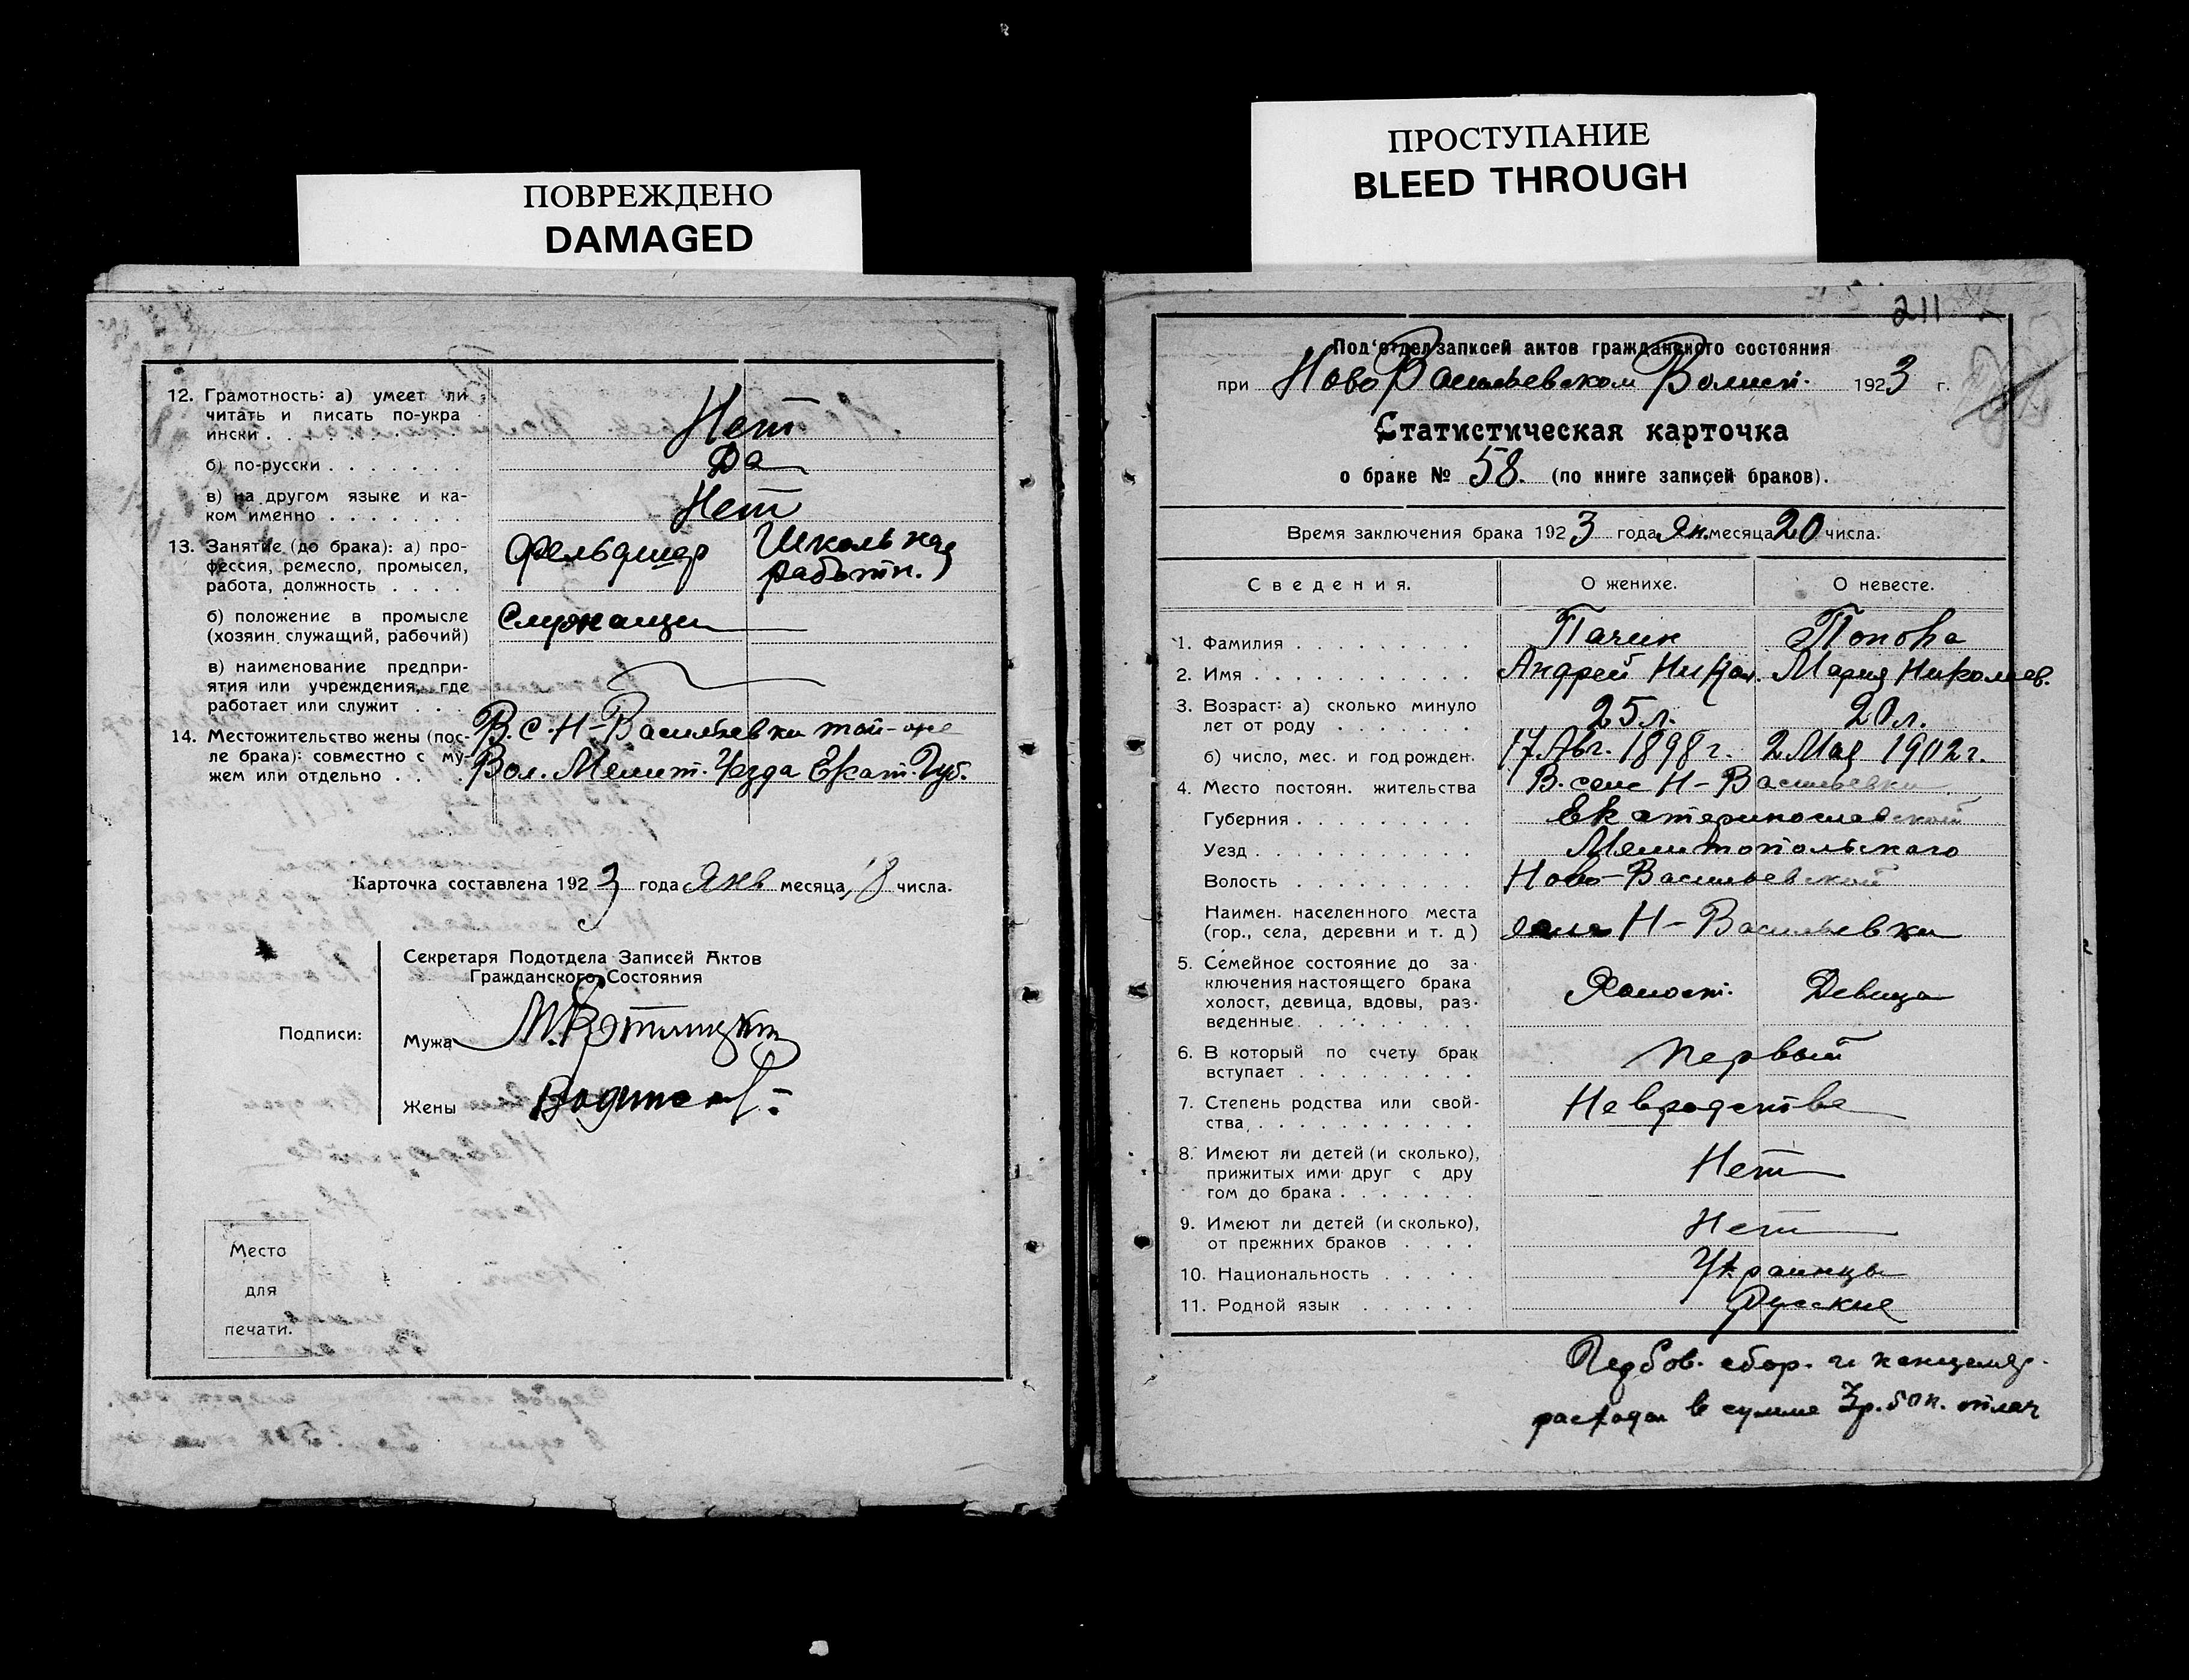 ПОВРЕЖДЕНО
DAMAGED
12. Грамотность: а) умеет ли
читать и писать по-укра
ински . . . Нет
б) по-русски . . . . . . . Да
в) на другом языке и ка-
ком именно . . . . . . . Нет
13. Занятие (до брака): а) про-
фессия, ремесло, промысел,
работа, должность . . . .
Фельдшер
Школьная
работн.
б) положение в промысле
(хозяин служащий, рабочий)
Служащи
в) наименование предпри-
ятия или учреждения, где
работает или служит . . .
14. Местожительство жены (пос-
ле брака): совместно с му-
жем или отдельно . . .
В. с. Н-Васильевки той-же
Вол. Мелит. Уезда Екат. Губ.
Карточка составлена 1923 года Янв месяца 18 числа.
Секретаря Подотдела Записей Актов
Гражданского Состояния
Подписи:
Мужа
Жены
Место
для
печати.
ПРОСТУПАНИЕ
BLEED THROUGH
211
Под'отдел запксей актов гражданского состояния
при Ново Васильевском Волисп. 1923 г.
Статистическая карточка
о браке № 58. (по книге записей браков).
Время заключения брака 1923 года Ян. месяца 20 числа.
Сведения. О женихе. О невесте.
1. Фамилия . . . . . . . . . Пачин Попова
2. Имя . . . . . . . . . . . Андрей Никол. Мария Николаев.
3. Возраст: а) сколько минуло
лет от роду . . . . . . . 25 л. 20 л.
б) число, мес. и год рожден. 17 Авг. 1898 г. 2 Мая 1902 г.
4. Место постоян. жительства В. селе Н-Васильевки
Губерния . . . . . . . . . Екатеринославской
Уезд . . . . . . . . . . . Мелитопольского
Волость . . . . . . . . . Ново-Васильевской
Наимен. населенного места
(гор., села, деревни и т. д) села Н-Васильевки
5. Семейное состояние до за-
ключения настоящего брака
холост, девица, вдовы, раз-
веденные. . . . . . . . .
Холост. Девица
6. В который по счету брак
вступает . . . . . . . . . Первый
7. Степень родства или свой-
ства, . . . . . . . . . . . Не в родстве
8. Имеют ли детей (и сколько),
прижитых ими друг с дру
гом до брака . . . . . . . Нет
9. Имеют ли детей (и сколько),
от прежних браков . . . . Нет
10. Национальность . . . . . Украинцы
11. Родной язык . . . . . . Русские
Гербов. сбор. и канцеляр.
расходы в сумме 3р. 50к. отлач